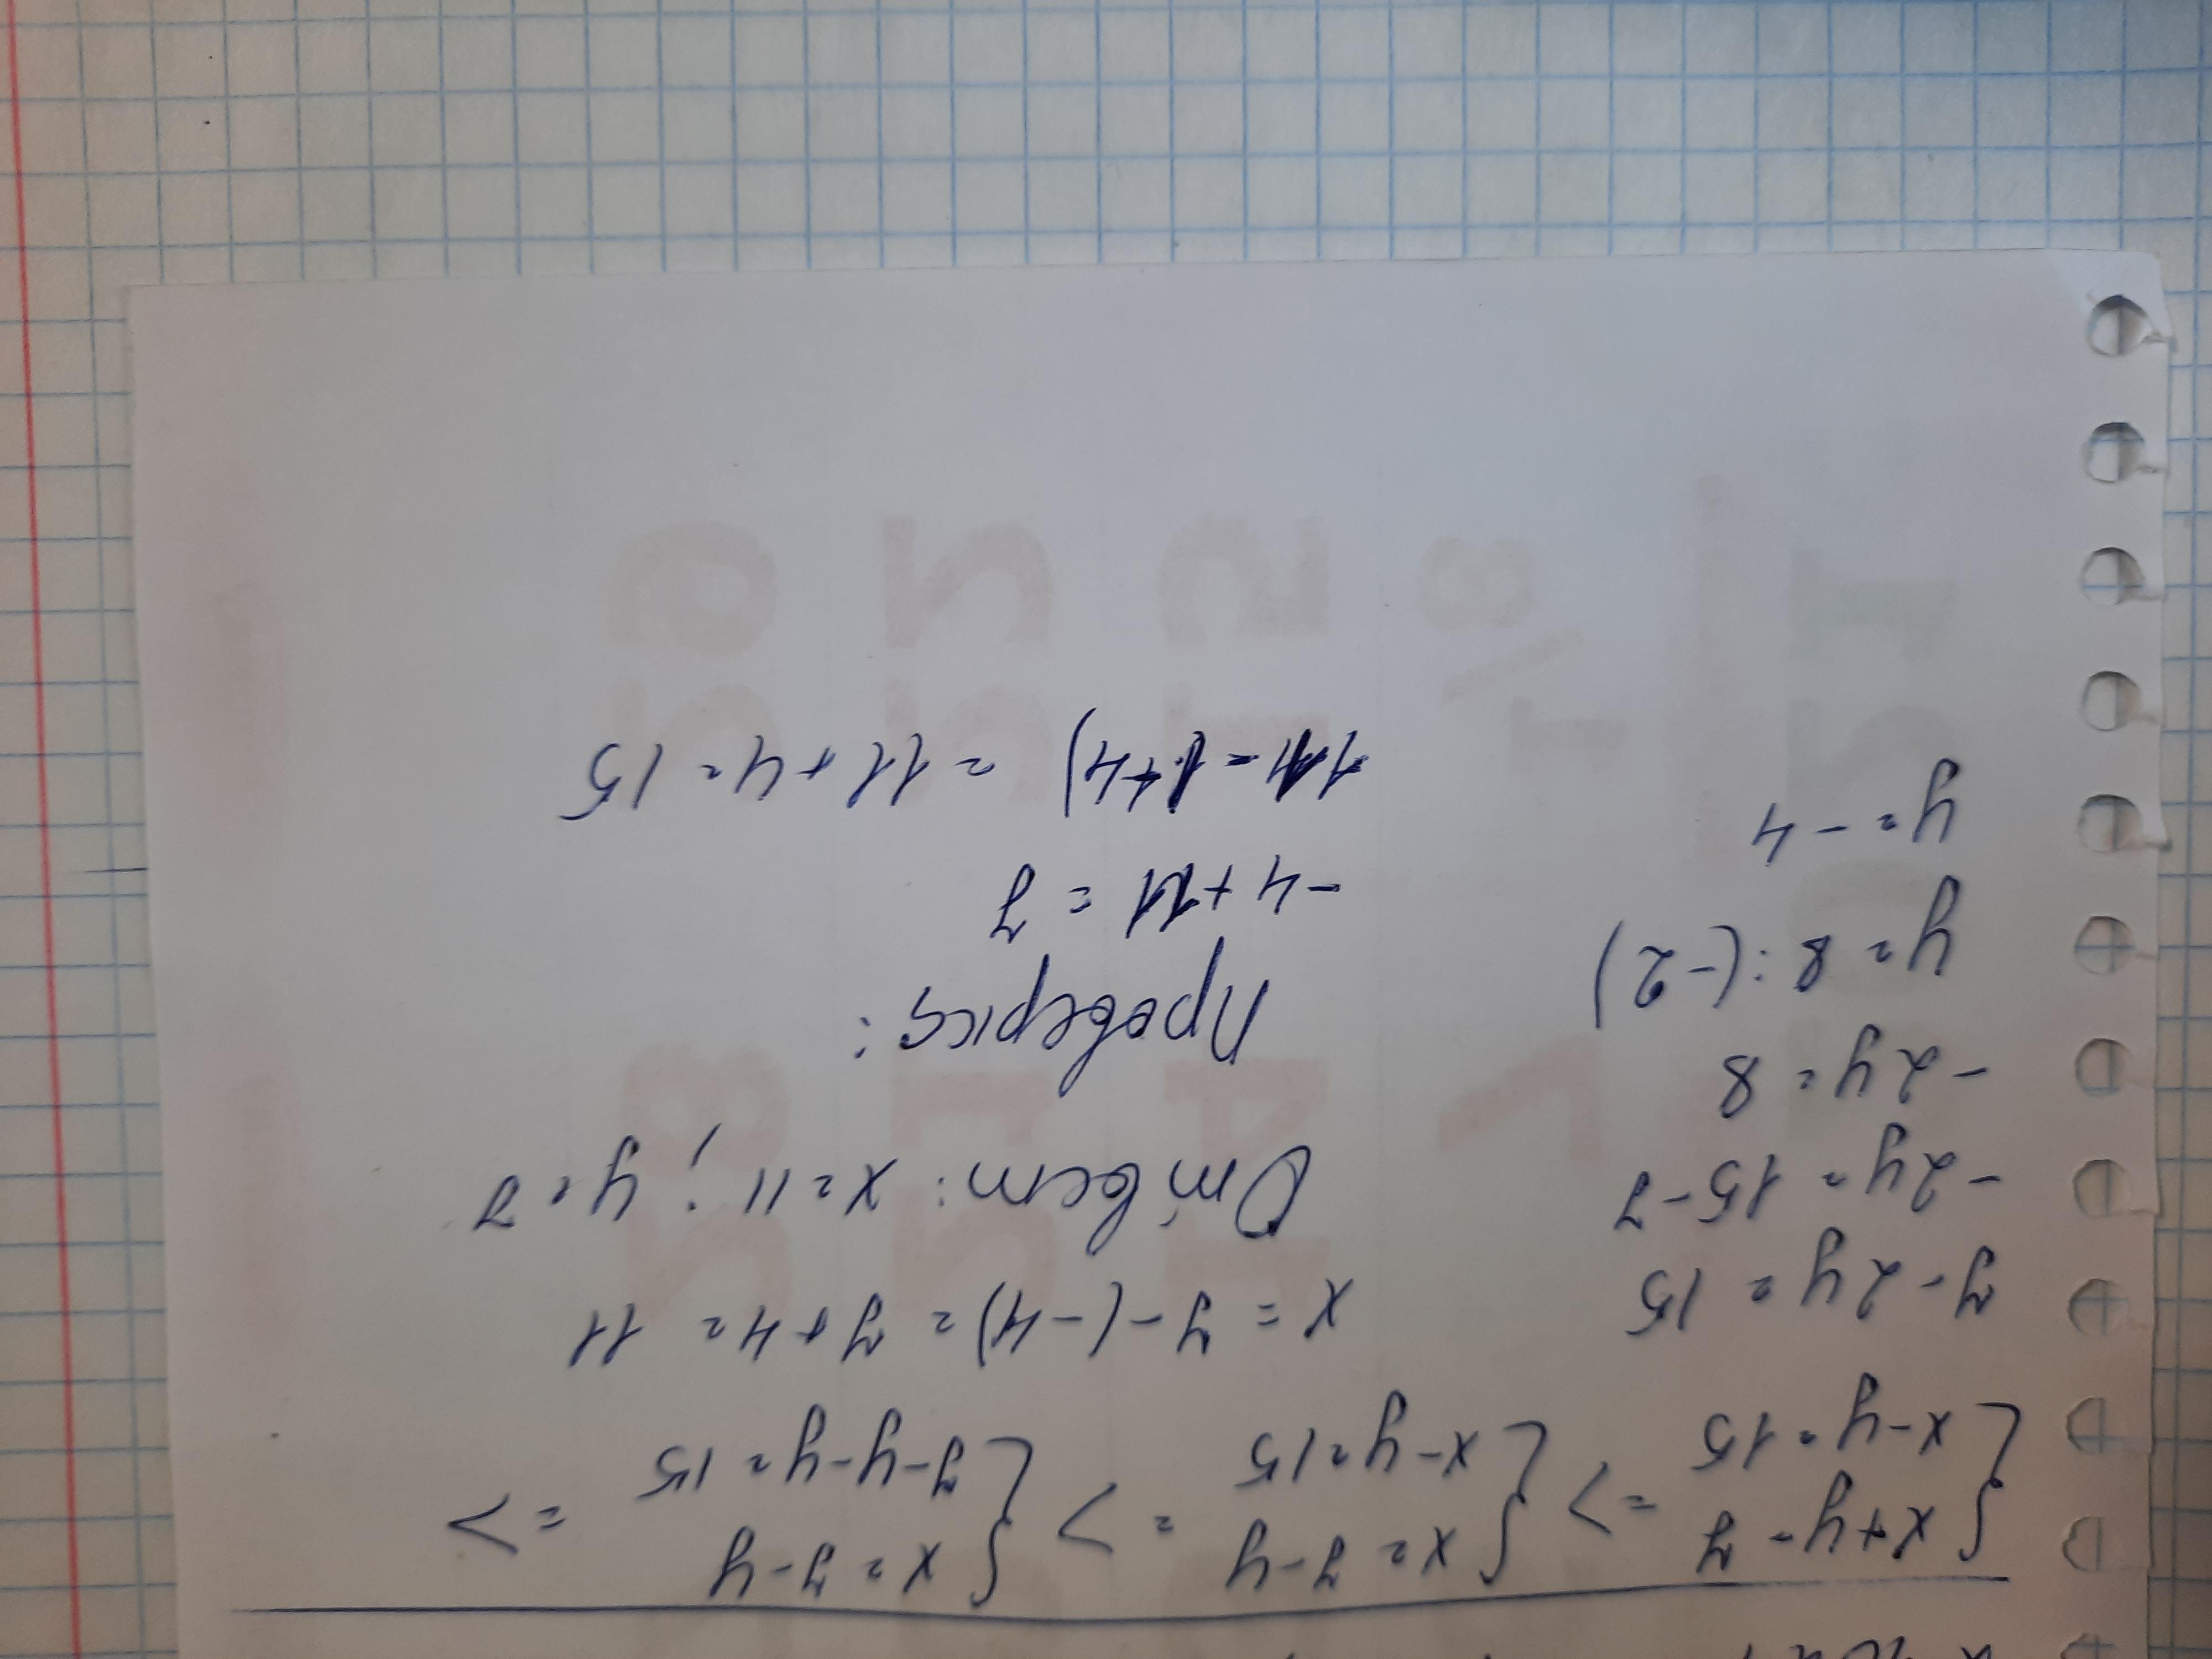 { x+y=7 => { x=7-y => { x=7-y =>
x-y=15 x-y=15 7-y-y=15
7-2y=15
-2y=15-7
-2y=8
y=8:(-2)
y=-4
x=7-(-4)=7+4=11
Ответ: x=11; y=7
Проверка:
-4+11=7
11-(+4)=11+4=15